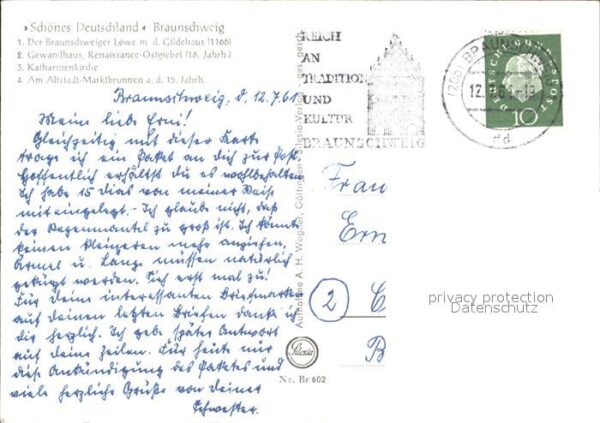 »Schönes Deutschland« Braunschweig
1. Der Braunschweiger Löwe m. d. Gildehaus (1166)
2. Gewandhaus, Renaissance-Ostgiebel (16. Jahrh.)
3. Katharinenkirche
4. Am Altstadt-Marktbrunnen a. d. 15. Jahrh.
Braunschweig, d. 12.7.61
Meine liebe Erni!
Gleichzeitig mit dieser Karte
trage ich ein Paket an dich zur Post.
Hoffentlich erhältst du es wohlbehalten.
Ich habe 15 Dias von meiner Reise
mit eingelegt. - Ich glaube nicht, daß
der Regenmantel zu groß ist. Ich könnte
keinen kleineren mehr anziehen,
Ärmel u. Länge müssen natürlich
gekürzt werden. Sieh erst mal zu!
Für deine interessanten Briefmarken
auf deinen letzten Briefen danke ich
dir herzlich. Ich gebe später Antwort
auf deine Zeilen. Für heute nur
diese Ankündigung des Paketes und
viele herzliche Grüße von deiner
Schwester.
REICH
AN
TRADITION
UND
KULTUR
BRAUNSCHWEIG
(20b) BRAUNSCHWEIG
12.7.61-19
dd
DEUTSCHE BUNDESPOST
10
Frau
Ern
2 C
B
Aufnahme A. H. Wegner, Göttingen
Silesia
Nr. Br 602
privacy protection
Datenschutz